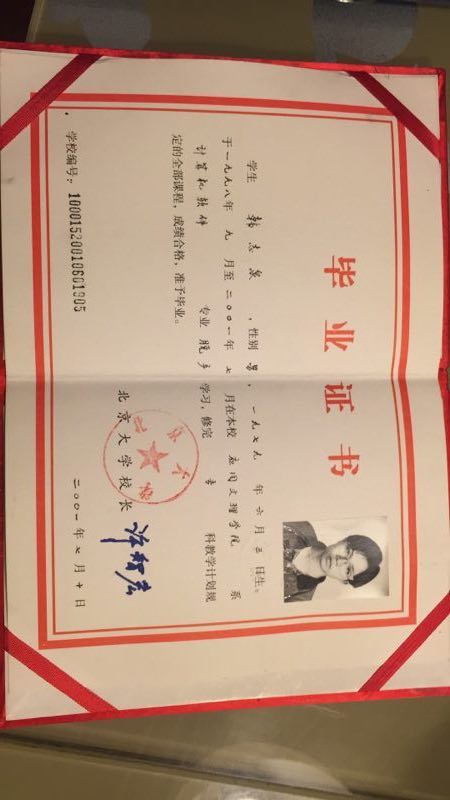 毕业证书
学生 韩志泉 ，性别 男 ，一九七九 年 六 月 三 日生。
于一九九八年 九 月至二〇〇一年 七 月在本校 应用文理学院 系
计算机软件 专业 脱产 学习，修完 专 科教学计划规
定的全部课程，成绩合格，准予毕业。
北京大学校长 许智宏
学校编号：10001520010601905 二〇〇一年七月十日